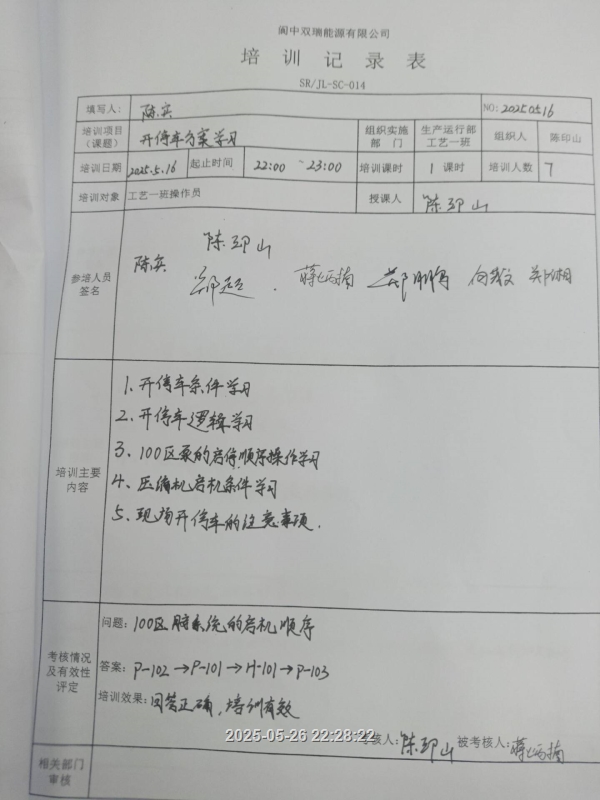 阆中双瑞能源有限公司
培训记录表
SR/JL-SC-014
填写人： 陈实 NO: 20250516
培训项目（课题） 开停车方案学习 组织实施部门 生产运行部工艺一班 组织人 陈印山
培训日期 2025.5.16 起止时间 22:00 ~ 23:00 培训课时 1 课时 培训人数 7
培训对象 工艺一班操作员 授课人 陈印山
参培人员签名 陈实 陈印山
郑超 郑鹏 郑湘
培训主要内容
1、开停车条件学习
2、开停车逻辑学习
3、100区泵的启停顺序操作学习
4、压缩机启机条件学习
5、现场开停车的注意事项.
考核情况及有效性评定
问题：100区脱系统的启机顺序
答案：P-102→P-101→H-101→P-103
培训效果：回答正确，培训有效
考核人：陈印山 被考核人：
相关部门审核
2025-05-26 22:28:22